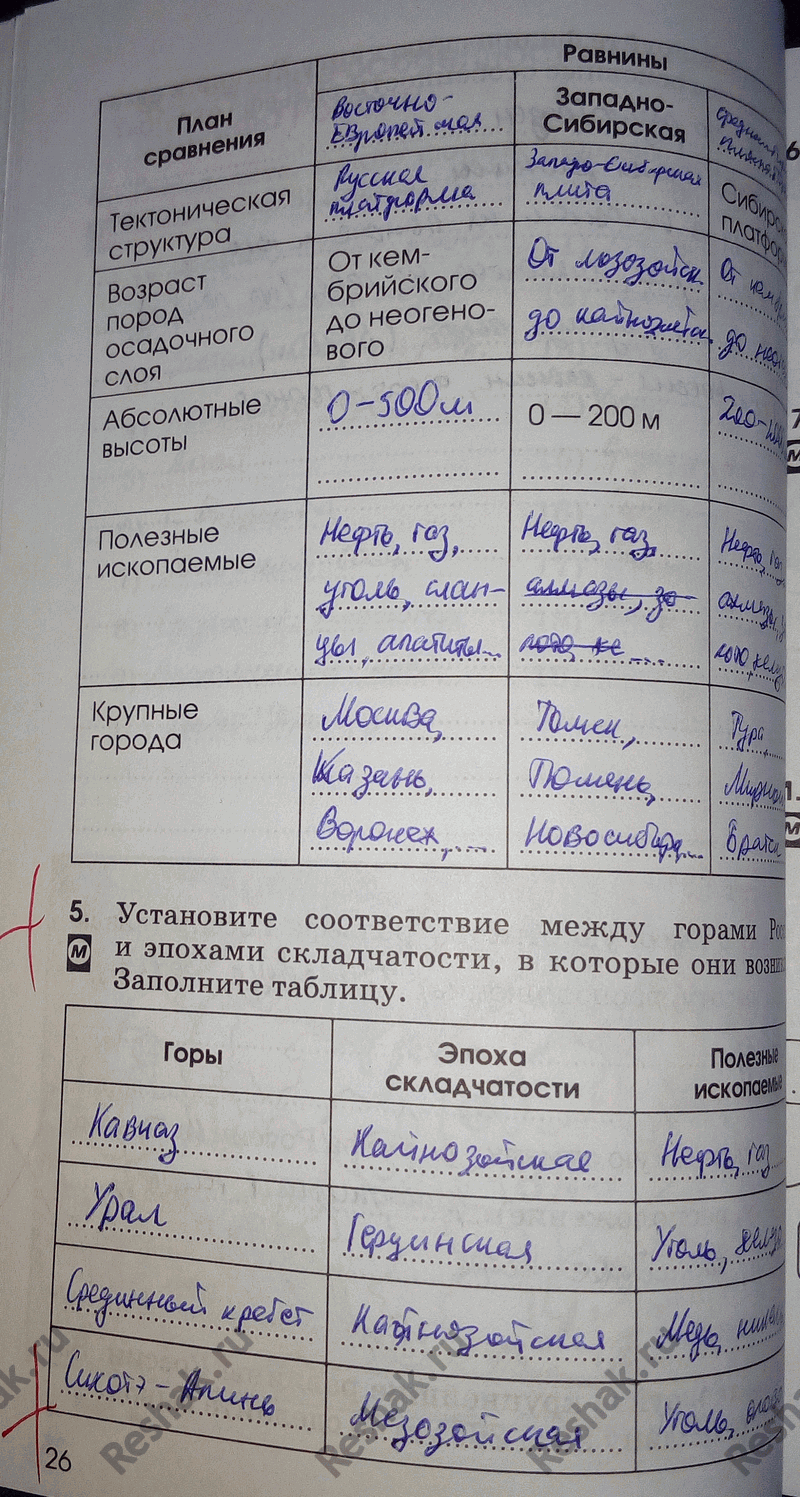 Равнины
План сравнения
Восточно-Европейская
Западно-Сибирская
Тектоническая структура
Русская платформа
Западо-Сибирская плита
Возраст пород осадочного слоя
От кембрийского до неогенового
От мозозойск. до кайнозойск.
От
до
Абсолютные высоты
0-500м
0 — 200 м
Полезные ископаемые
Нефть, газ, уголь, сланцы, апатиты
Нефть, газ,
Нефть,
Крупные города
Москва, Казань, Воронеж,
Томск, Тюмень, Новосибирск
Тура,
Братск
5. Установите соответствие между горами
М и эпохами складчатости, в которые они
Заполните таблицу.
Горы
Эпоха складчатости
Полезные ископаемые
Кавказ
Кайнозойская
Нефть, газ
Урал
Герцинская
Уголь,
Срединный хребет
Кайнозойская
Медь,
Сихотэ-Алинь
Мезозойская
Уголь,
26
Reshak.ru
Reshak.ru
Reshak.ru